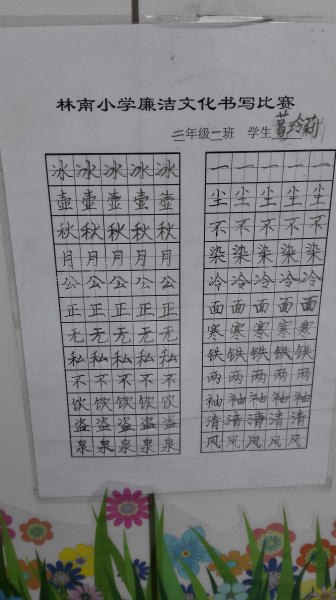 林南小学廉洁文化书写比赛
二年级一班 学生
冰冰冰冰冰
壶壶壶壶壶
秋秋秋秋秋
月月月月月
公公公公公
正正正正正
无无无无无
私私私私私
不不不不不
饮饮饮饮饮
盗盗盗盗盗
泉泉泉泉泉
一一一一一
尘尘尘尘尘
不不不不不
染染染染染
冷冷冷冷冷
面面面面面
寒寒寒寒寒
铁铁铁铁铁
两两两两两
袖袖袖袖袖
清清清清清
风风风风风